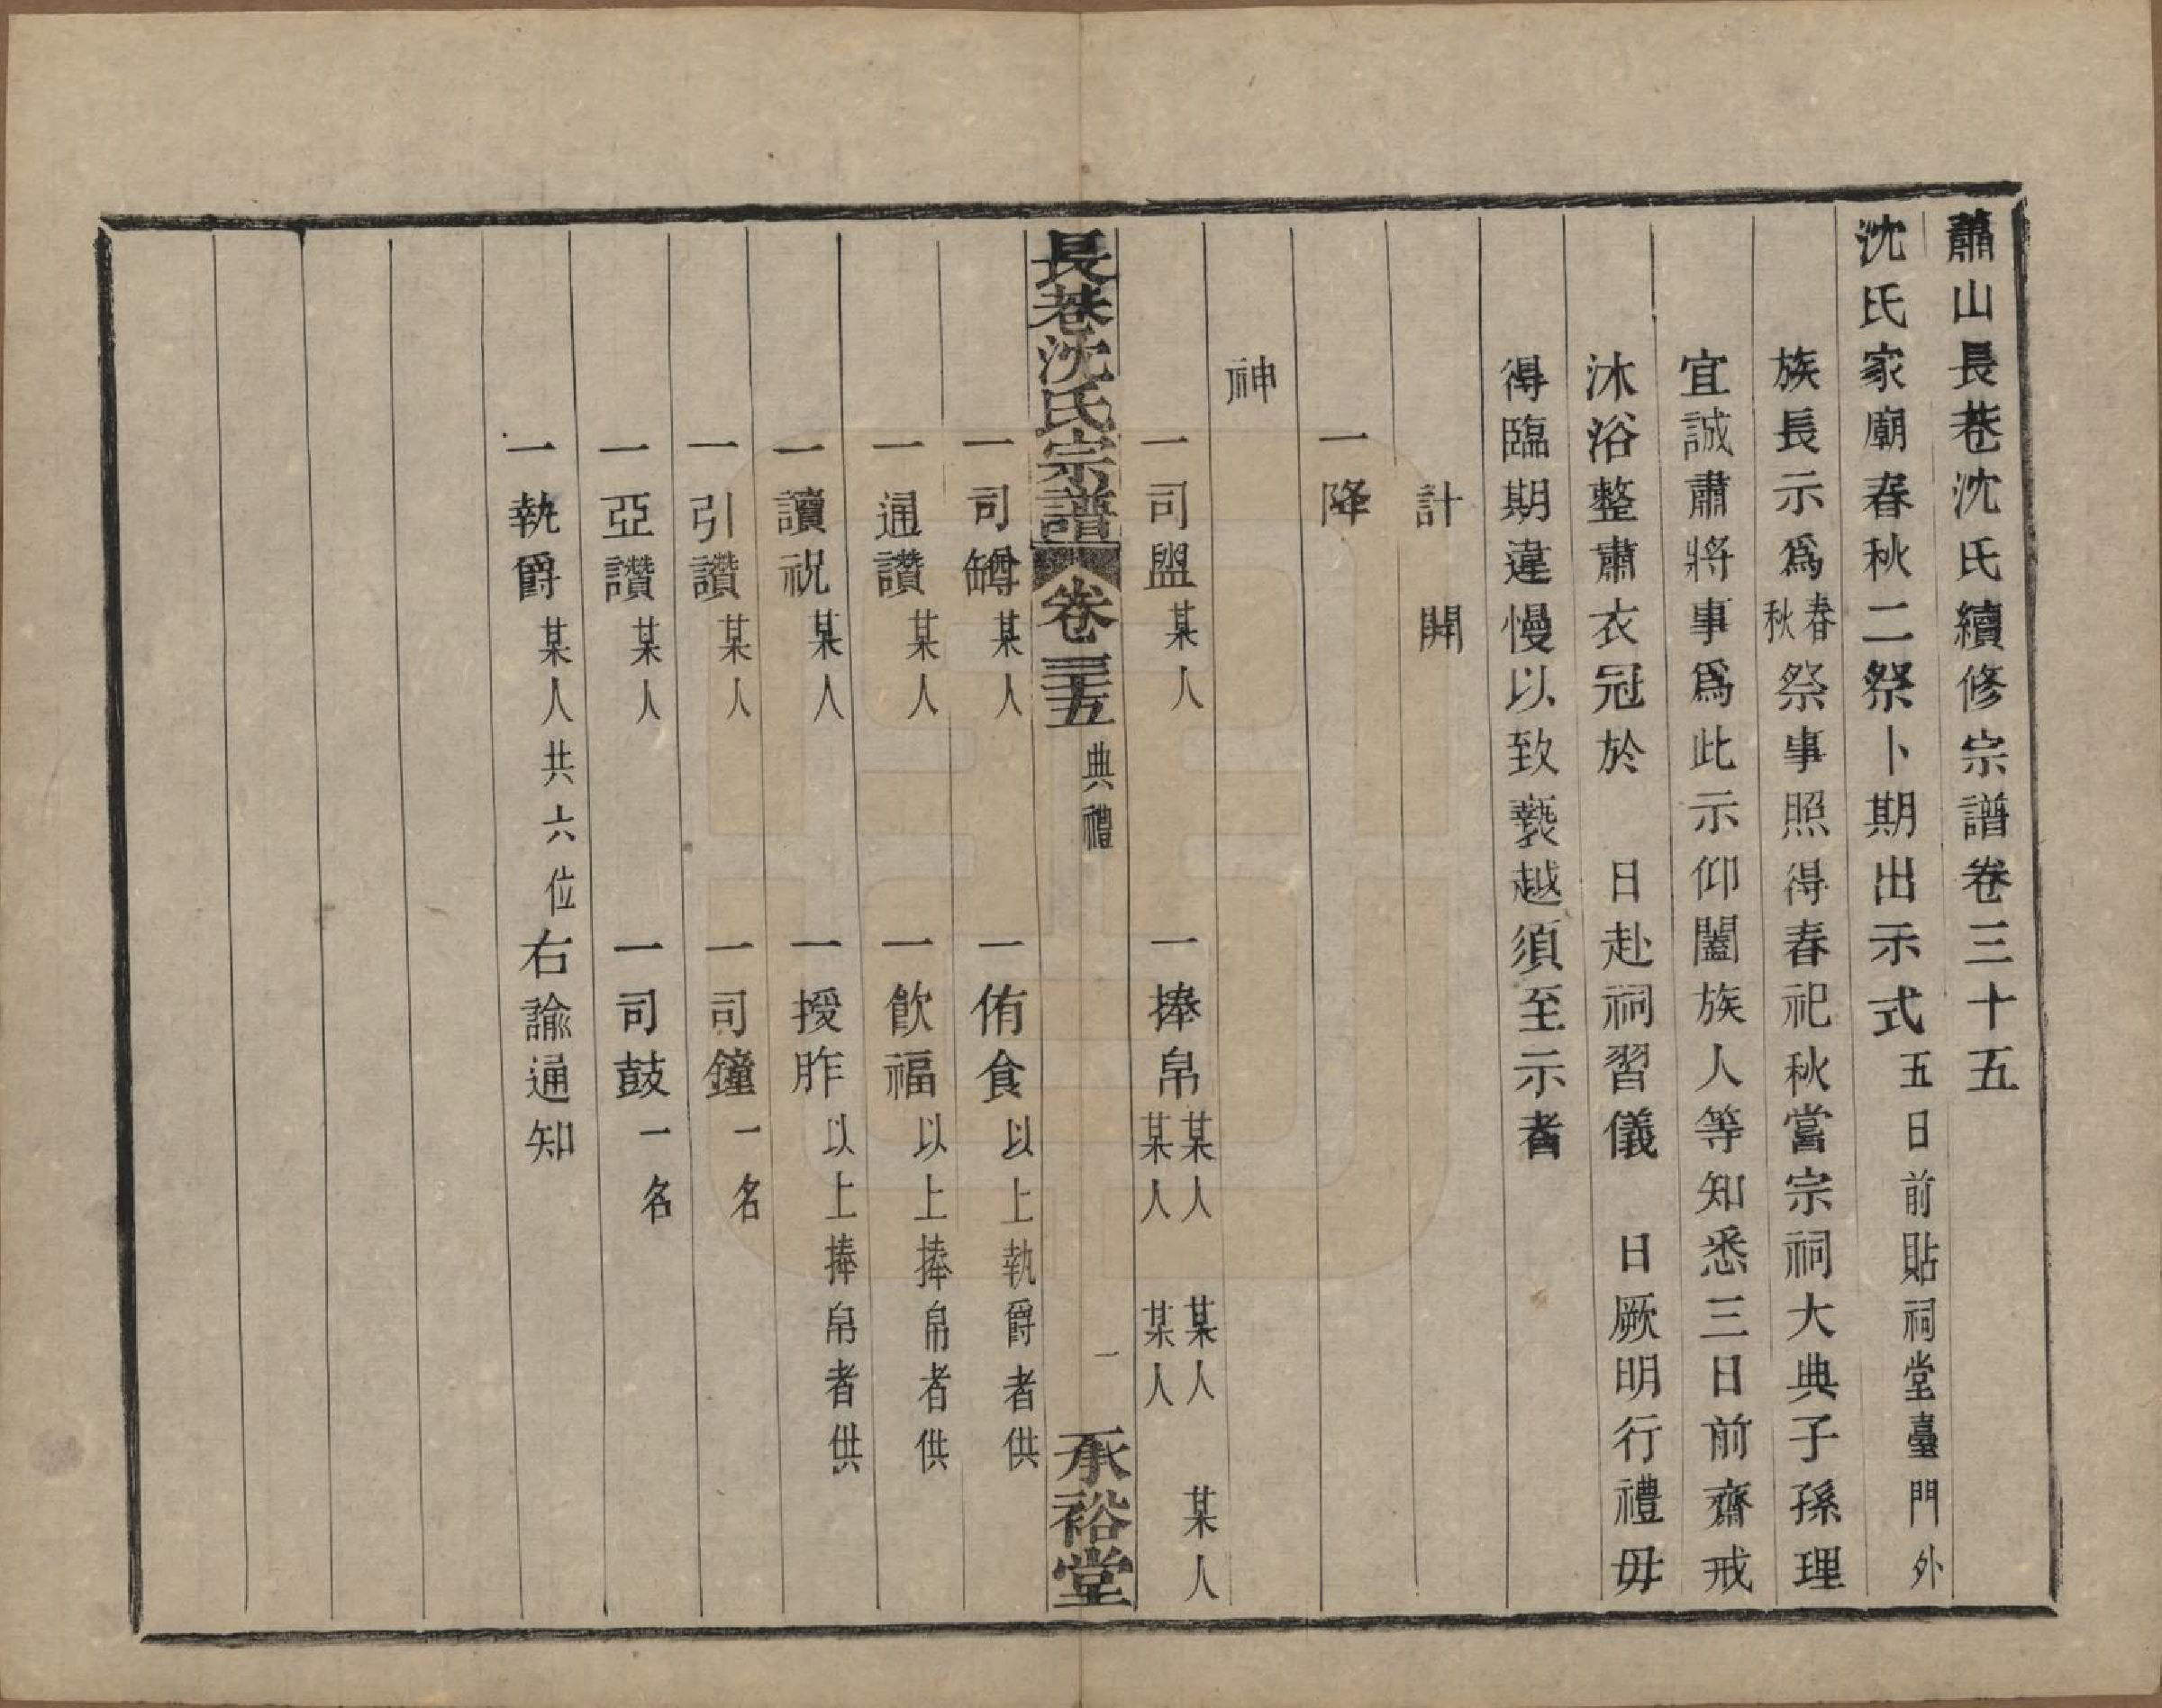 蕭山長巷沈氏續修宗譜卷三十五
沈氏家廟春秋二祭卜期出示式五日前貼祠堂臺門外
族長示爲春秋祭事照得春祀秋嘗宗祠大典子孫理
宜誠肅將事爲此示仰闔族人等知悉三日前齋戒
沐浴整肅衣冠於　日赴祠習儀　日厥明行禮毋
得臨期違慢以致褻越須至示者
計　開
一降
神
一司盥某人　一捧帛某人某人　某人某人　某人
長巷沈氏宗譜　卷三十五　典禮　一　承裕堂
一司罇某人　一侑食以上執爵者供
一通讚某人　一飲福以上捧帛者供
一讀祝某人　一授胙以上捧帛者供
一引讚某人　一司鐘一名
一亞讚某人　一司鼓一名
一執爵某人共六位　右諭通知